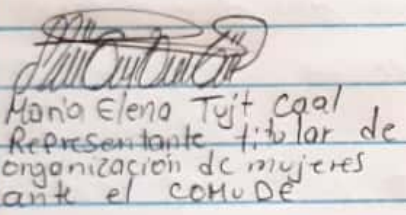 Maria Elena Tujt Caal
Representante titular de
organización de mujeres
ante el COMUDE